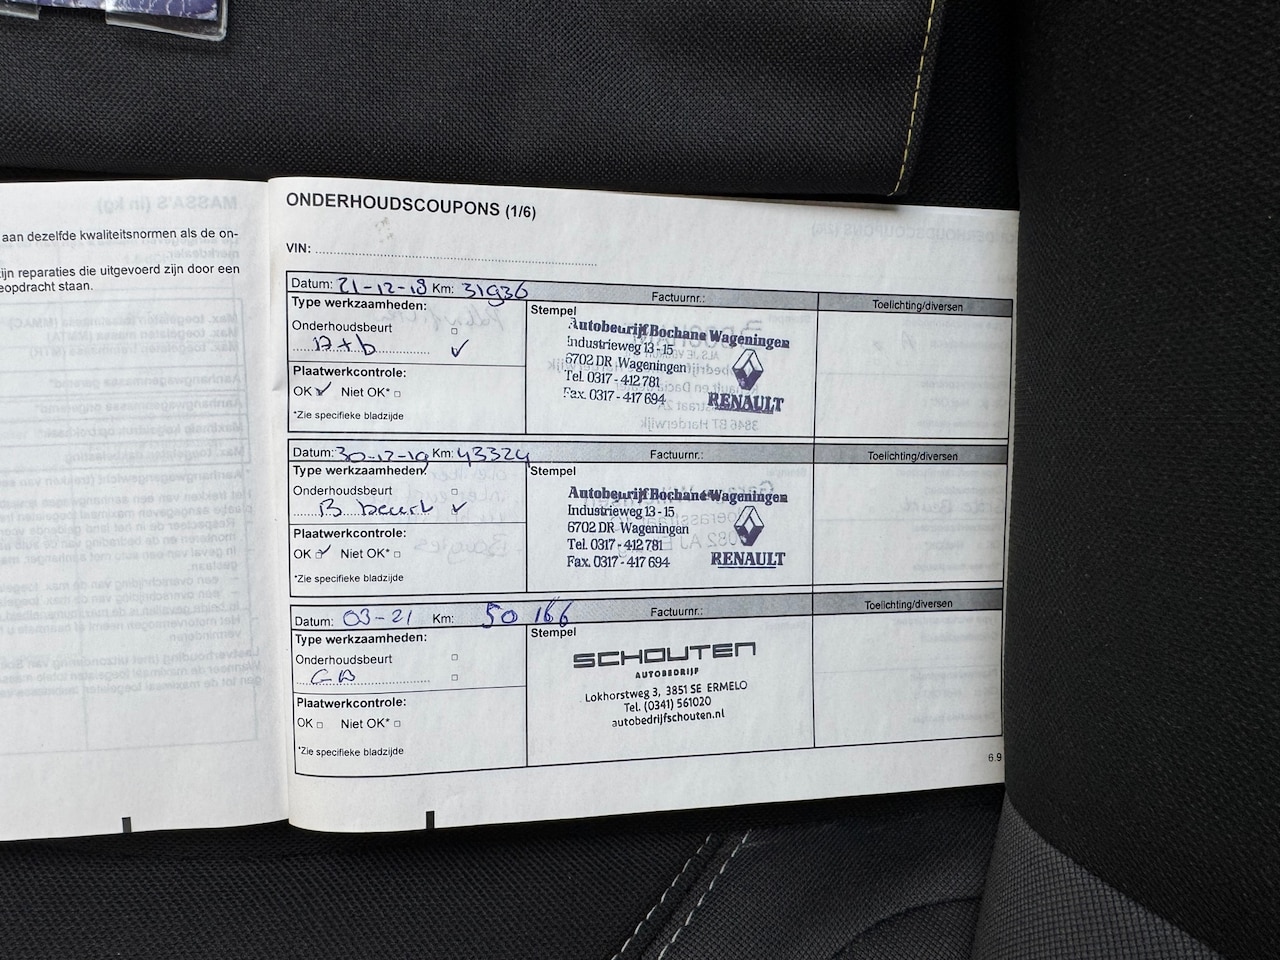 aan dezelfde kwaliteitsnormen als de on-
ijn reparaties die uitgevoerd zijn door een
eopdracht staan.
ONDERHOUDSCOUPONS (1/6)
VIN:
Datum: 21-12-18 Km: 31936 Factuurnr.: Toelichting/diversen
Type werkzaamheden:
Onderhoudsbeurt
A+b
Plaatwerkcontrole:
OK Niet OK*
*Zie specifieke bladzijde
Stempel
Autobedrijf Bochane Wageningen
Industrieweg 13 - 15
6702 DR Wageningen
Tel. 0317 - 412 781
Fax. 0317 - 417 694
RENAULT
Datum: 30-12-19 Km: 43324 Factuurnr.: Toelichting/diversen
Type werkzaamheden:
Onderhoudsbeurt
B beurt
Plaatwerkcontrole:
OK Niet OK*
*Zie specifieke bladzijde
Stempel
Autobedrijf Bochane Wageningen
Industrieweg 13 - 15
6702 DR Wageningen
Tel. 0317 - 412 781
Fax. 0317 - 417 694
RENAULT
Datum: 03-21 Km: 50 166 Factuurnr.: Toelichting/diversen
Type werkzaamheden:
Onderhoudsbeurt
GB
Plaatwerkcontrole:
OK Niet OK*
*Zie specifieke bladzijde
Stempel
SCHOUTEN
AUTOBEDRIJF
Lokhorstweg 3, 3851 SE ERMELO
Tel. (0341) 561020
autobedrijfschouten.nl
6.9